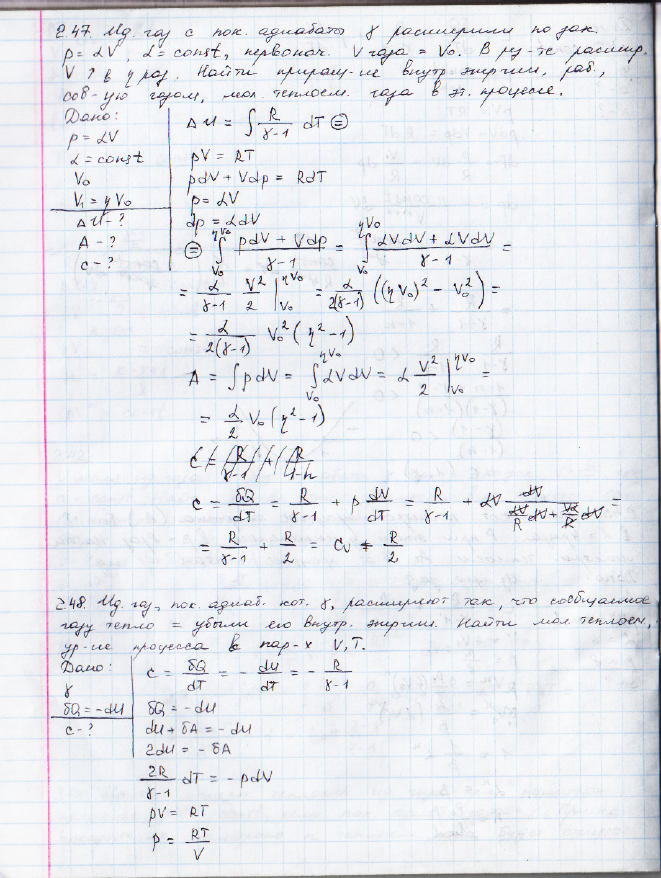 2.47. Ид. газ с пок. адиабаты γ расширили по зак.
p = αV, α = const, первонач. V газа = V₀. В рез-те расшир.
V ↑ в η раз. Найти приращ-ие внутр. энергии, раб.,
сов-ую газом, мол. теплоем. газа в эт. процессе.
Дано:
p = αV
α = const
V₀
V₁ = ηV₀
ΔU - ?
A - ?
c - ?
ΔU = ∫ R/(γ-1) dT (=)
pV = RT
pdV + Vdp = RdT
p = αV
dp = αdV
(=) ∫_{V₀}^{ηV₀} (pdV + Vdp)/(γ-1) = ∫_{V₀}^{ηV₀} (αVdV + αVdV)/(γ-1) =
= α/(γ-1) V²/2 |_{V₀}^{ηV₀} = α/(2(γ-1)) ((ηV₀)² - V₀²) =
= α/(2(γ-1)) V₀² (η² - 1)
A = ∫ pdV = ∫_{V₀}^{ηV₀} αVdV = α V²/2 |_{V₀}^{ηV₀} =
= α/2 V₀ (η² - 1)
c = δQ/dT = R/(γ-1) + p dV/dT = R/(γ-1) + αV dV/(αV/R dV + Vα/R dV) =
= R/(γ-1) + R/2 = Cv + R/2
2.48. Ид. газ, пок. адиаб. кот. γ, расширяют так, что сообщаемое
газу тепло = убыли его внутр. энергии. Найти мол. теплоем,
ур-ие процесса в пар-х V, T.
Дано:
γ
δQ = -dU
c - ?
c = δQ/dT = - dU/dT = - R/(γ-1)
δQ = -dU
dU + δA = -dU
2dU = -δA
2R/(γ-1) dT = -pdV
pV = RT
p = RT/V